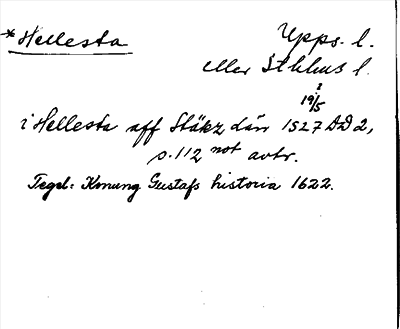 *Hellesta
Upps. l.
eller Sthlms l.
19/5
i Hellesta aff Stäkz län 1527 DD 2,
s. 112 not avtr.
Tegel: Konung Gustafs historia 1622.